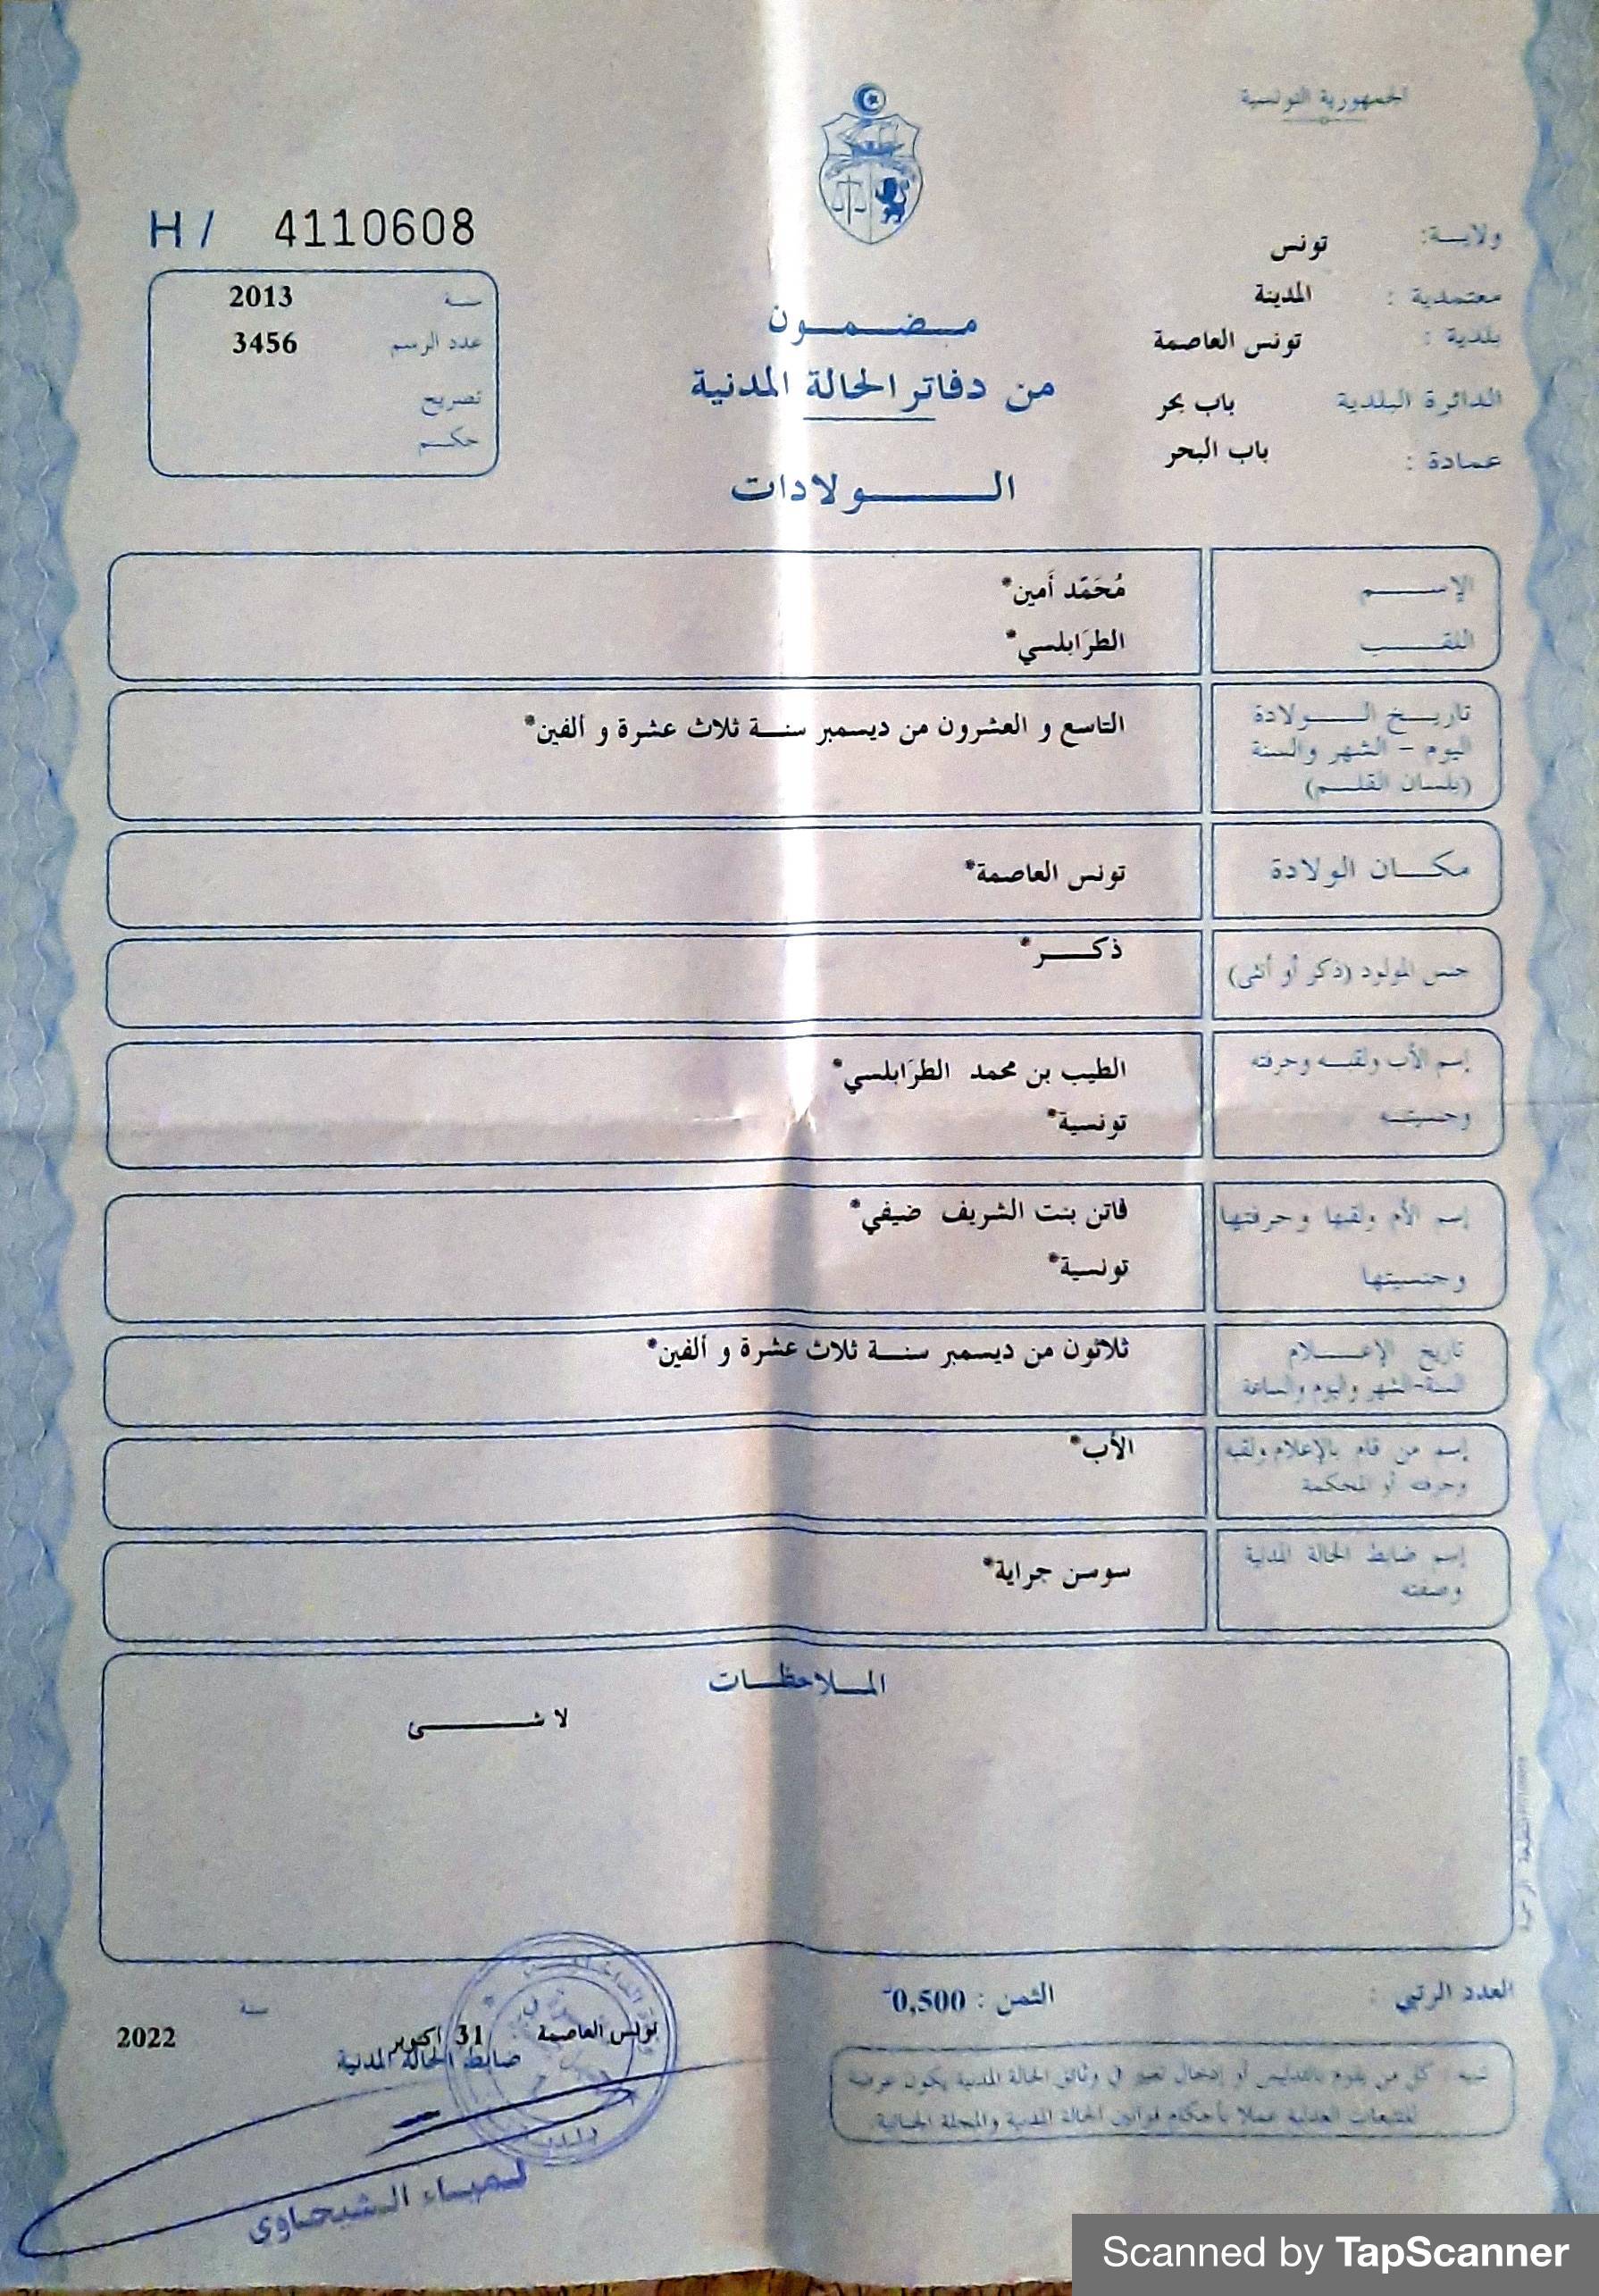 الجمهورية التونسية
H / 4110608
ولايـــة: تونس
معتمدية : المدينة
بلدية : تونس العاصمة
الدائرة البلدية باب بحر
عمادة : باب البحر
سنة 2013
عدد الرسم 3456
تصريح
حكـــم
مـــضـــمـــون
من دفاتر الحالة المدنية
الـــــــولادات
الإســـــــم مُحَمّد أَمين*
اللقـــــب الطرَابلسي*
تاريـــخ الـــــولادة التاسع و العشرون من ديسمبر سنـــة ثلاث عشرة و ألفين*
اليوم - الشهر والسنة
(بلسان القلـــم)
مكـــان الولادة تونس العاصمة*
جنس المولود (ذكر أو أنثى) ذكـــــر*
إسم الأب ولقبـــه وحرفته الطيب بن محمد الطرَابلسي*
وجنسيتـــه تونسية*
إسم الأم ولقبها وحرفتها فاتن بنت الشريف ضيفي*
وجنسيتها تونسية*
تاريخ الإعـــــلام ثلاثون من ديسمبر سنـــة ثلاث عشرة و ألفين*
السنة-الشهر واليوم والساعة
إسم من قام بالإعلام ولقبه الأب*
وحرفته أو المحكمة
إسم ضابط الحالة المدنية سوسن جراية*
وصفته
المـــلاحظـــات
لا شـــــــئ
العدد الرتبي :
الثمن : 0,500
تونس العاصمة 31 اكتوبر سنة 2022
ضابط الحالة المدنية
تنبيه : كل من يقوم بالتدليس أو إدخال تغيير في وثائق الحالة المدنية يكون عرضة
للتتبعات العدلية عملا بأحكام قوانين الحالة المدنية والمجلة الجنائية.
لـميـــاء الـشيحـاوي
Scanned by TapScanner